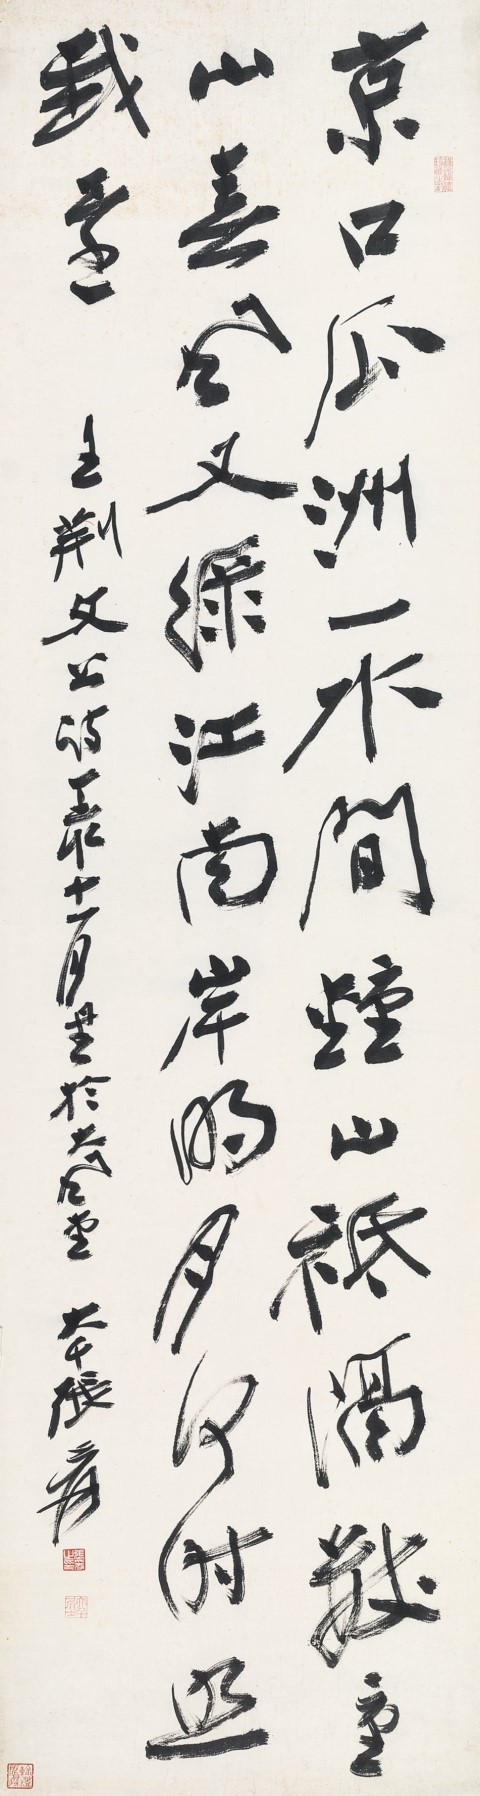 京口瓜洲一水間鍾山祗隔數重
山春風又綠江南岸明月何時照
我還
王荆文公詩 十一月書於大風堂 大千張爰